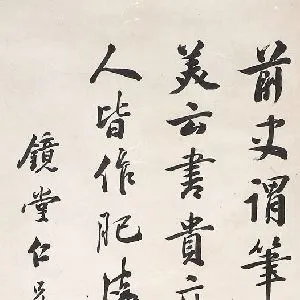 前史謂筆
美云書貴
人皆作肥
鏡堂仁兄